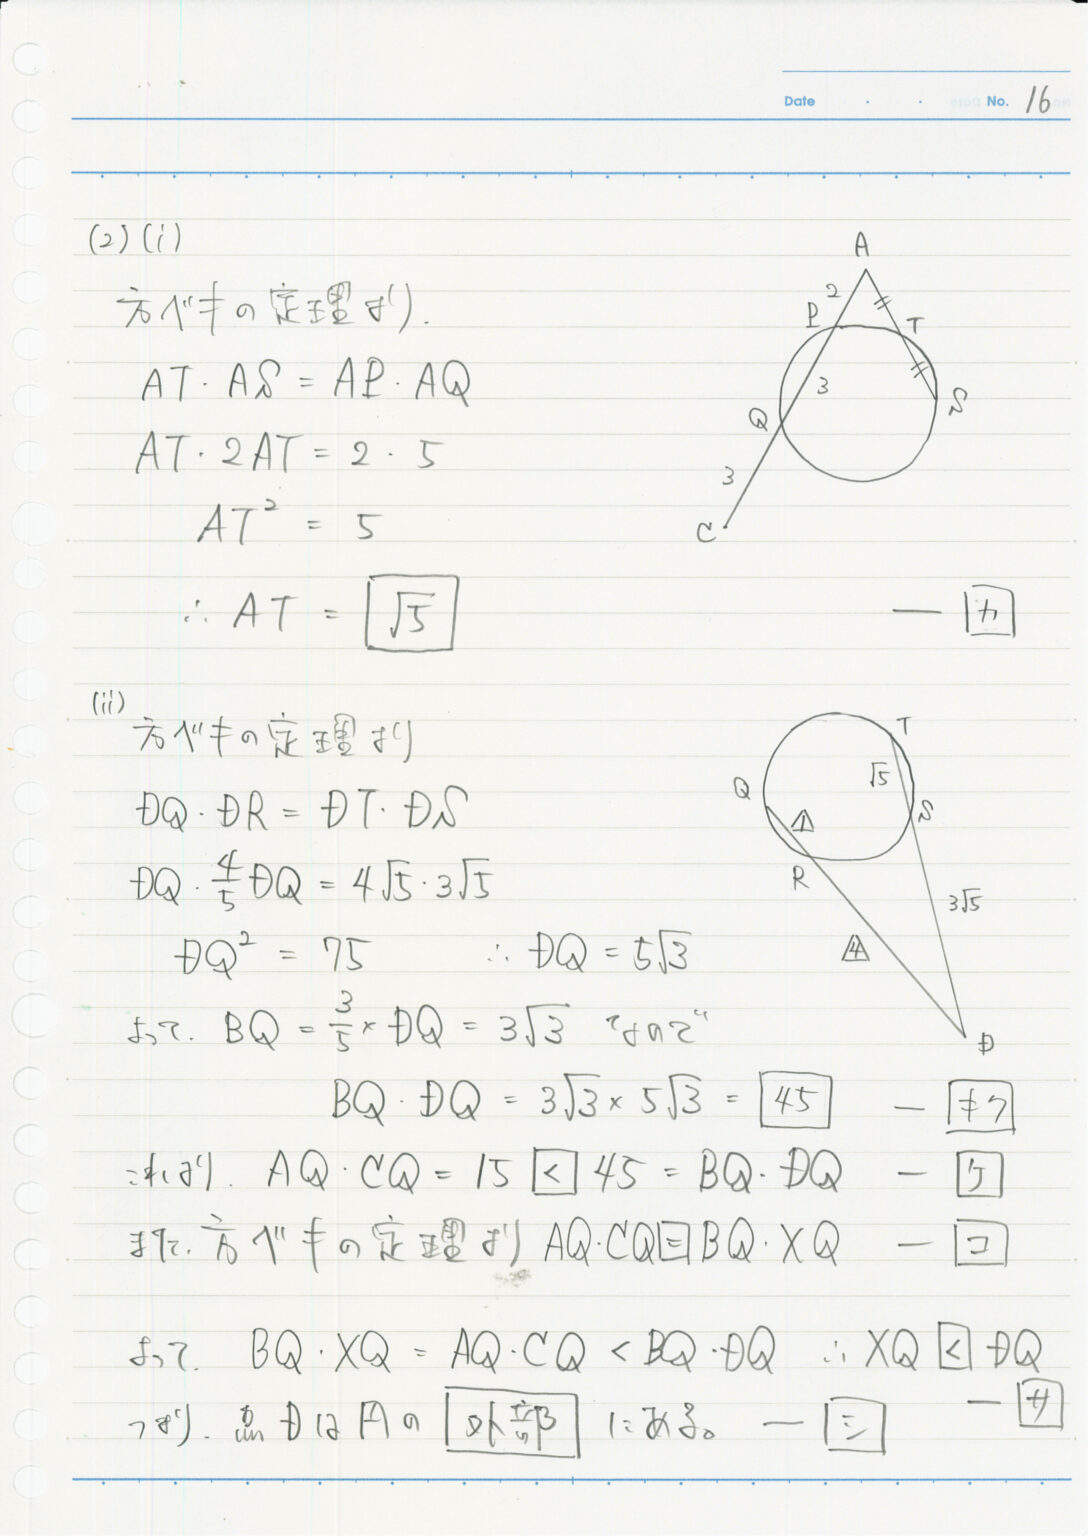 Date No. 16
(2)(i)
方べキの定理より.
AT・AS = AP・AQ
AT・2AT = 2・5
AT² = 5
∴ AT = √5
— カ
A
2
P
T
3
Q
S
3
C
(ii)
方べキの定理より
DQ・DR = DT・DS
DQ・4/5 DQ = 4√5・3√5
DQ² = 75 ∴ DQ = 5√3
よって. BQ = 3/5 × DQ = 3√3 なので
BQ・DQ = 3√3 × 5√3 = 45 — キク
これより. AQ・CQ = 15 < 45 = BQ・DQ — ケ
また, 方べキの定理より AQ・CQ = BQ・XQ — コ
よって. BQ・XQ = AQ・CQ < BQ・DQ ∴ XQ < DQ
— サ
つまり. 点Dは円の 外部 にある。 — シ
T
√5
Q
1
S
R
3√5
4
D